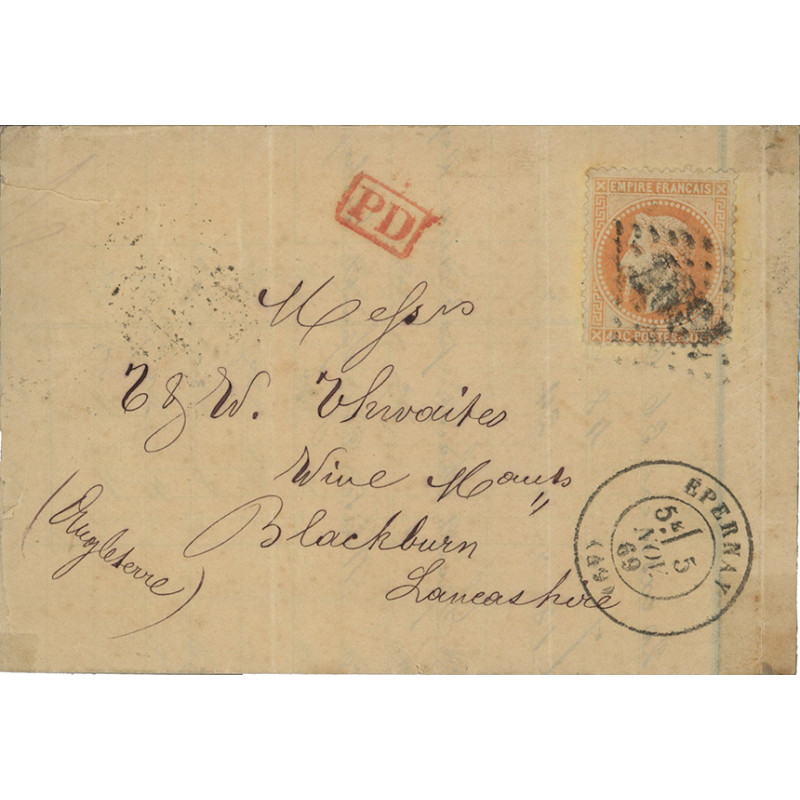 PD
EMPIRE FRANCAIS
40C POSTES 40C
Messrs
T & W. Thwaites
Wine Mcants
Blackburn
Lancashire
(Angleterre)
EPERNAY
5E 5
NOV
69
(49)